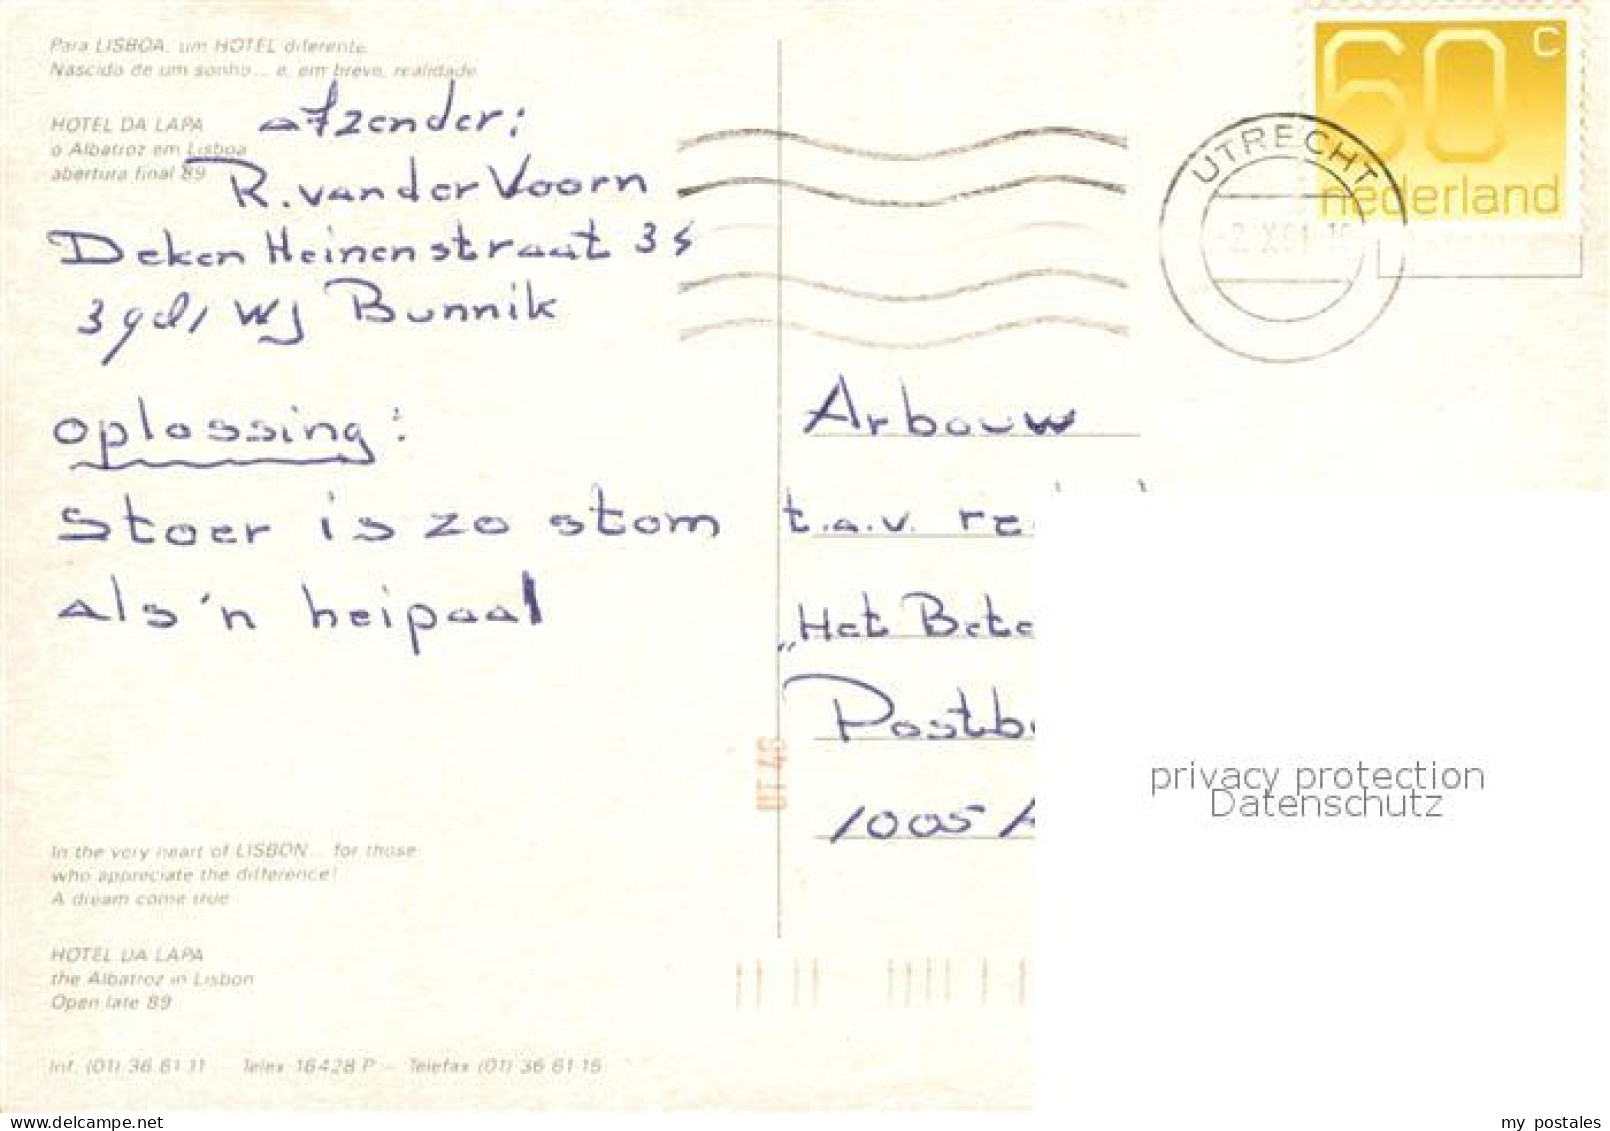 Para LISBOA, um HOTEL diferente.
Nascido de um sonho... e, em breve, realidade.
HOTEL DA LAPA
o Albatroz em Lisboa
abertura final 89
afzender:
R. van der Voorn
Deken Heinenstraat 35
3981 WJ Bunnik
oplossing:
Stoer is zo stom
als 'n heipaal
In the very heart of LISBON... for those
who appreciate the difference!
A dream come true
HOTEL DA LAPA
the Albatroz in Lisbon
Open late 89
Inf. (01) 36 61 11 Telex 16428 P - Telefax (01) 36 61 15
60 c
nederland
UTRECHT
Arbouw
t.a.v. re
„Het Bete
Postb
1005 A
UT 48
privacy protection
Datenschutz
my postales